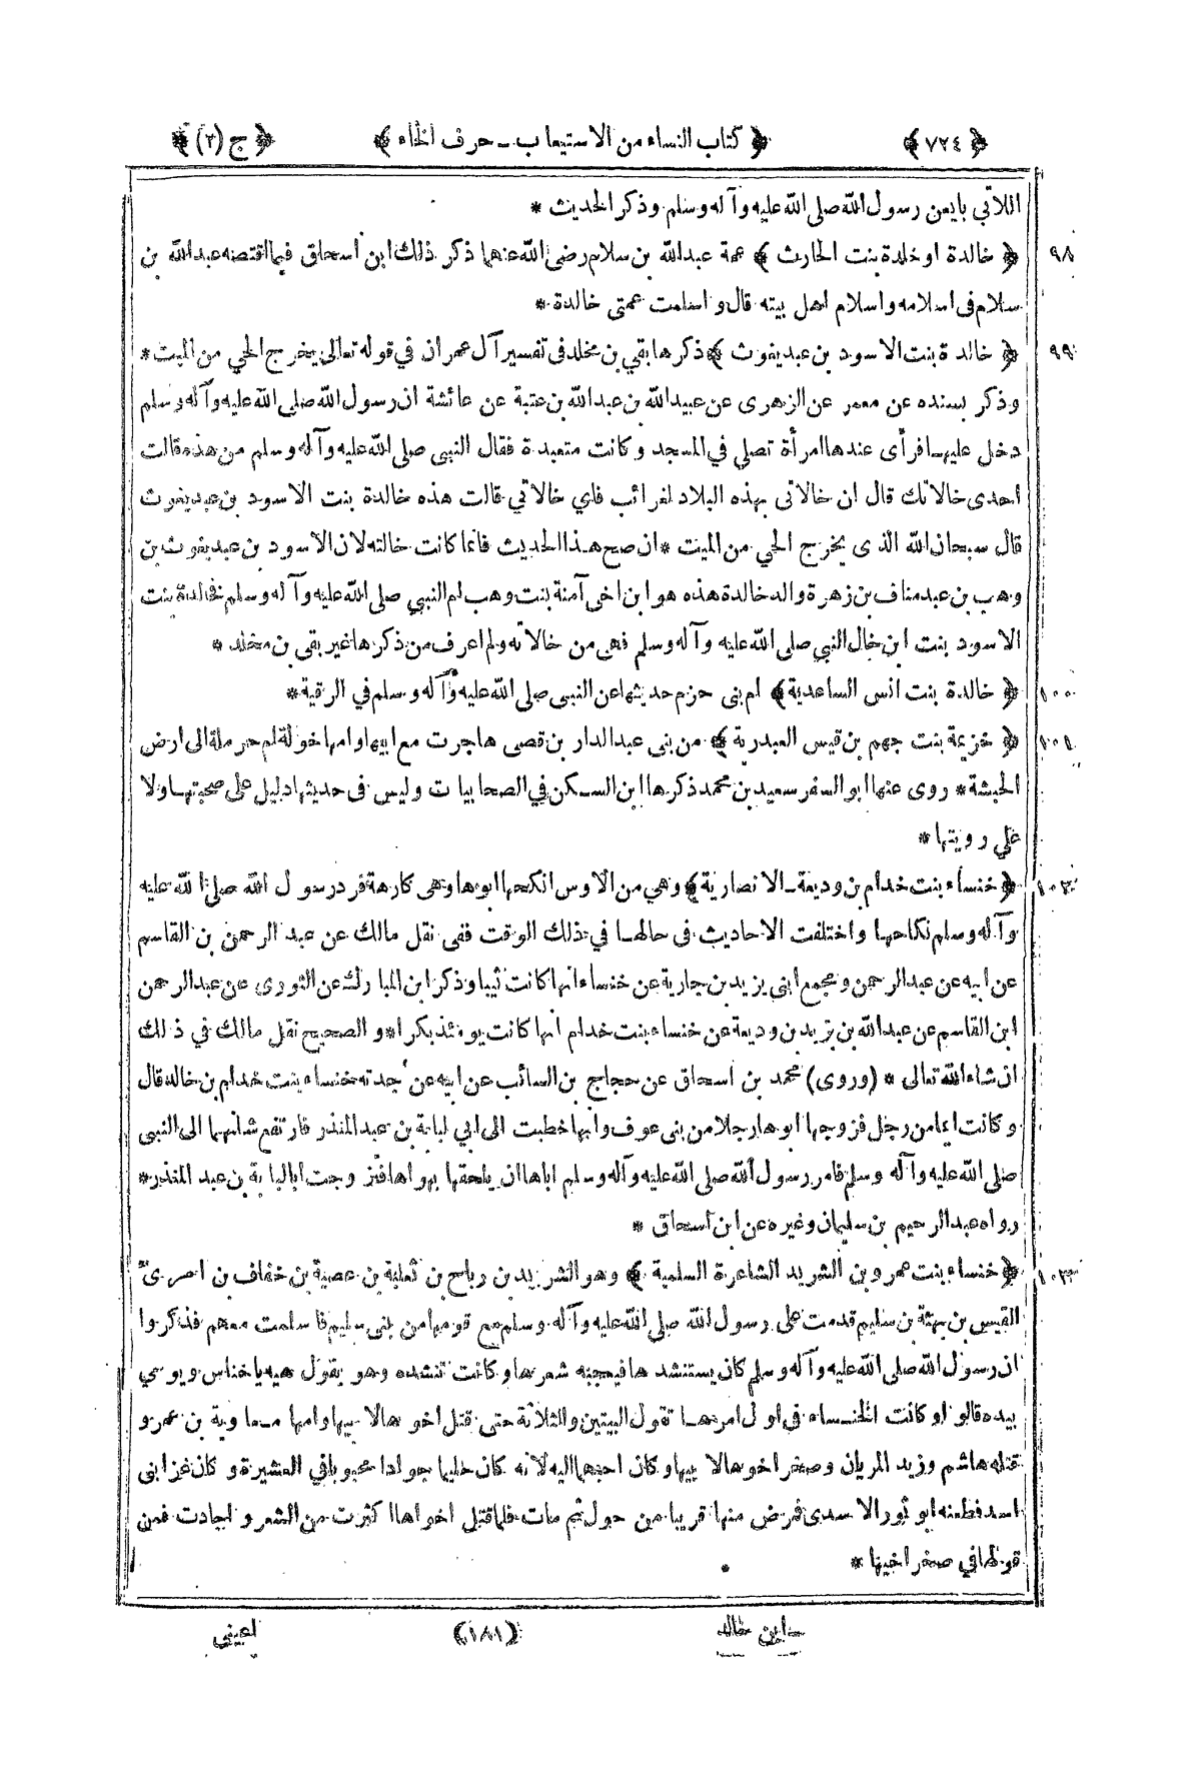 ﴿ ٧٢٤ ﴾ ﴿ كتاب النساء من الاستيعاب ــ حرف الخاء ﴾ ﴿ ج (٢) ﴾
اللاتي بايعن رسول الله صلى الله عليه وآله وسلم وذكر الحديث *
٩٨ ﴿ خالدة او خلدة بنت الحارث ﴾ عمة عبدالله بن سلام رضى الله عنها ذكر ذلك ابن اسحاق فيما اقتصه عبدالله بن
سلام فى اسلامه واسلام اهل بيته قال واسلمت عمتى خالدة *
٩٩ ﴿ خالدة بنت الاسود بن عبد يغوث ﴾ ذكرها بقي بن مخلد فى تفسير آل عمران في قوله تعالى يخرج الحي من الميت *
وذكر بسنده عن معمر عن الزهرى عن عبيدالله بن عبدالله بن عتبة عن عائشة ان رسول الله صلى الله عليه وآله وسلم
دخل عليها فرأى عندها امرأة تصلي في المسجد وكانت متعبدة فقال النبى صلى الله عليه وآله وسلم من هذه قالت
احدى خالاتك قال ان خالاتى بهذه البلاد لغرائب فاي خالاتي قالت هذه خالدة بنت الاسود بن عبد يغوث
قال سبحان الله الذى يخرج الحي من الميت * ان صح هذا الحديث فانما كانت خالته لان الاسود بن عبد يغوث بن
وهب بن عبد مناف بن زهرة والد خالدة هذه هو ابن اخى آمنة بنت وهب لم النبي صلى الله عليه وآله وسلم فخالدة بنت
الاسود بنت ابن خال النبي صلى الله عليه وآله وسلم فهى من خالاته ولم اعرف من ذكرها غير بقى بن مخلد *
١٠٠ ﴿ خالدة بنت انس الساعدية ﴾ ام بنى حزم حديثها عن النبى صلى الله عليه وآله وسلم في الرقية *
١٠١ ﴿ خزيمة بنت جهم بن قيس العبدرية ﴾ من بنى عبد الدار بن قصى هاجرت مع ابيها وامها خولة ام حرملة الى ارض
الحبشة * روى عنها ابو السفر سعيد بن محمد ذكرها ابن السكن في الصحابيات وليس فى حديثها دليل على صحبتها ولا
على رويتها *
١٠٢ ﴿ خنساء بنت خدام بن وديعة ــ الانصارية ﴾ وهي من الاوس انكحها ابوها وهى كارهة فرد رسول الله صلى الله عليه
وآله وسلم نكاحها واختلفت الاحاديث فى حالها في ذلك الوقت ففى نقل مالك عن عبد الرحمن بن القاسم
عن ابيه عن عبد الرحمن ومجمع ابنى يزيد بن جارية عن خنساء انها كانت ثيبا وذكر ابن المبارك عن الثورى عن عبد الرحمن
ابن القاسم عن عبدالله بن يزيد بن وديعة عن خنساء بنت خدام انها كانت يومئذ بكرا * والصحيح نقل مالك في ذلك
ان شاء الله تعالى * (وروى) محمد بن اسحاق عن حجاج بن السائب عن ابيه عن جدته خنساء بنت خدام بن خالد قال
وكانت ايما من رجل فزوجها ابوها رجلا من بنى عوف وانها خطبت الى ابي لبابة بن عبد المنذر فارتفع شانهما الى النبى
صلى الله عليه وآله وسلم فامر رسول الله صلى الله عليه وآله وسلم اباها ان يلحقها بهواها فتزوجت ابا لبابة بن عبد المنذر *
رواه عبد الرحيم بن سليمان وغيره عن ابن اسحاق *
١٠٣ ﴿ خنساء بنت عمرو بن الشريد الشاعرة السلمية ﴾ وهو الشريد بن رباح بن ثعلبة بن عصية بن خفاف بن امرئ
القيس بن بهثة بن سليم قدمت على رسول الله صلى الله عليه وآله وسلم مع قومها من بنى سليم فاسلمت معهم فذكروا
ان رسول الله صلى الله عليه وآله وسلم كان يستنشدها فيعجبه شعرها وكانت تنشده وهو يقول هيه يا خناس ويومي
بيده قالوا وكانت الخنساء فى اول امرها تقول البيتين والثلاثة حتى قتل اخوها لابيها وامها معاوية بن عمرو
قتله هاشم وزيد المريان وصخر اخوها لا بيها وكان احبهما اليه لانه كان حليما جوادا محبوبا في العشيرة وكان غزا بنى
اسد فطعنه ابو ثور الاسدى فمرض منها قريبا من حول ثم مات فلما قتل اخواها اكثرت من الشعر واجادت فمن
قولها في صخر اخيها *
ابن خالد (١٨١) اعينى